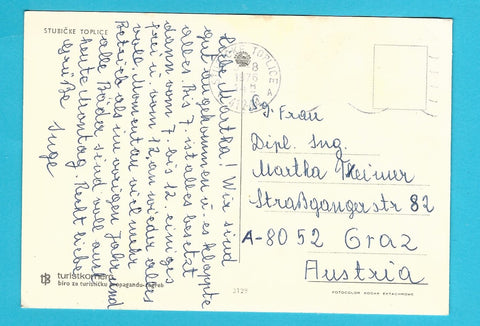 STUBIČKE TOPLICE
Liebe Martha! Wir sind
gut angekommen u. es klappte
alles. Bis 7. ist alles besetzt
dann vom 7. bis 12. einiges
frei u. vom 12. an wieder alles
voll. Momentan viel mehr
Betrieb als im vorigen Jahr und
alle Bäder sind voll aus
heute Montag. Recht liebe
Grüße Inge
TOPLICE
1976
Dipl. Ing.
Frau
Martha
Straßgangerstr 82
A-8052 Graz
Austria
turistkomerc
biro za turističku propagandu-zagreb
FOTOCOLOR KODAK EKTACHROME